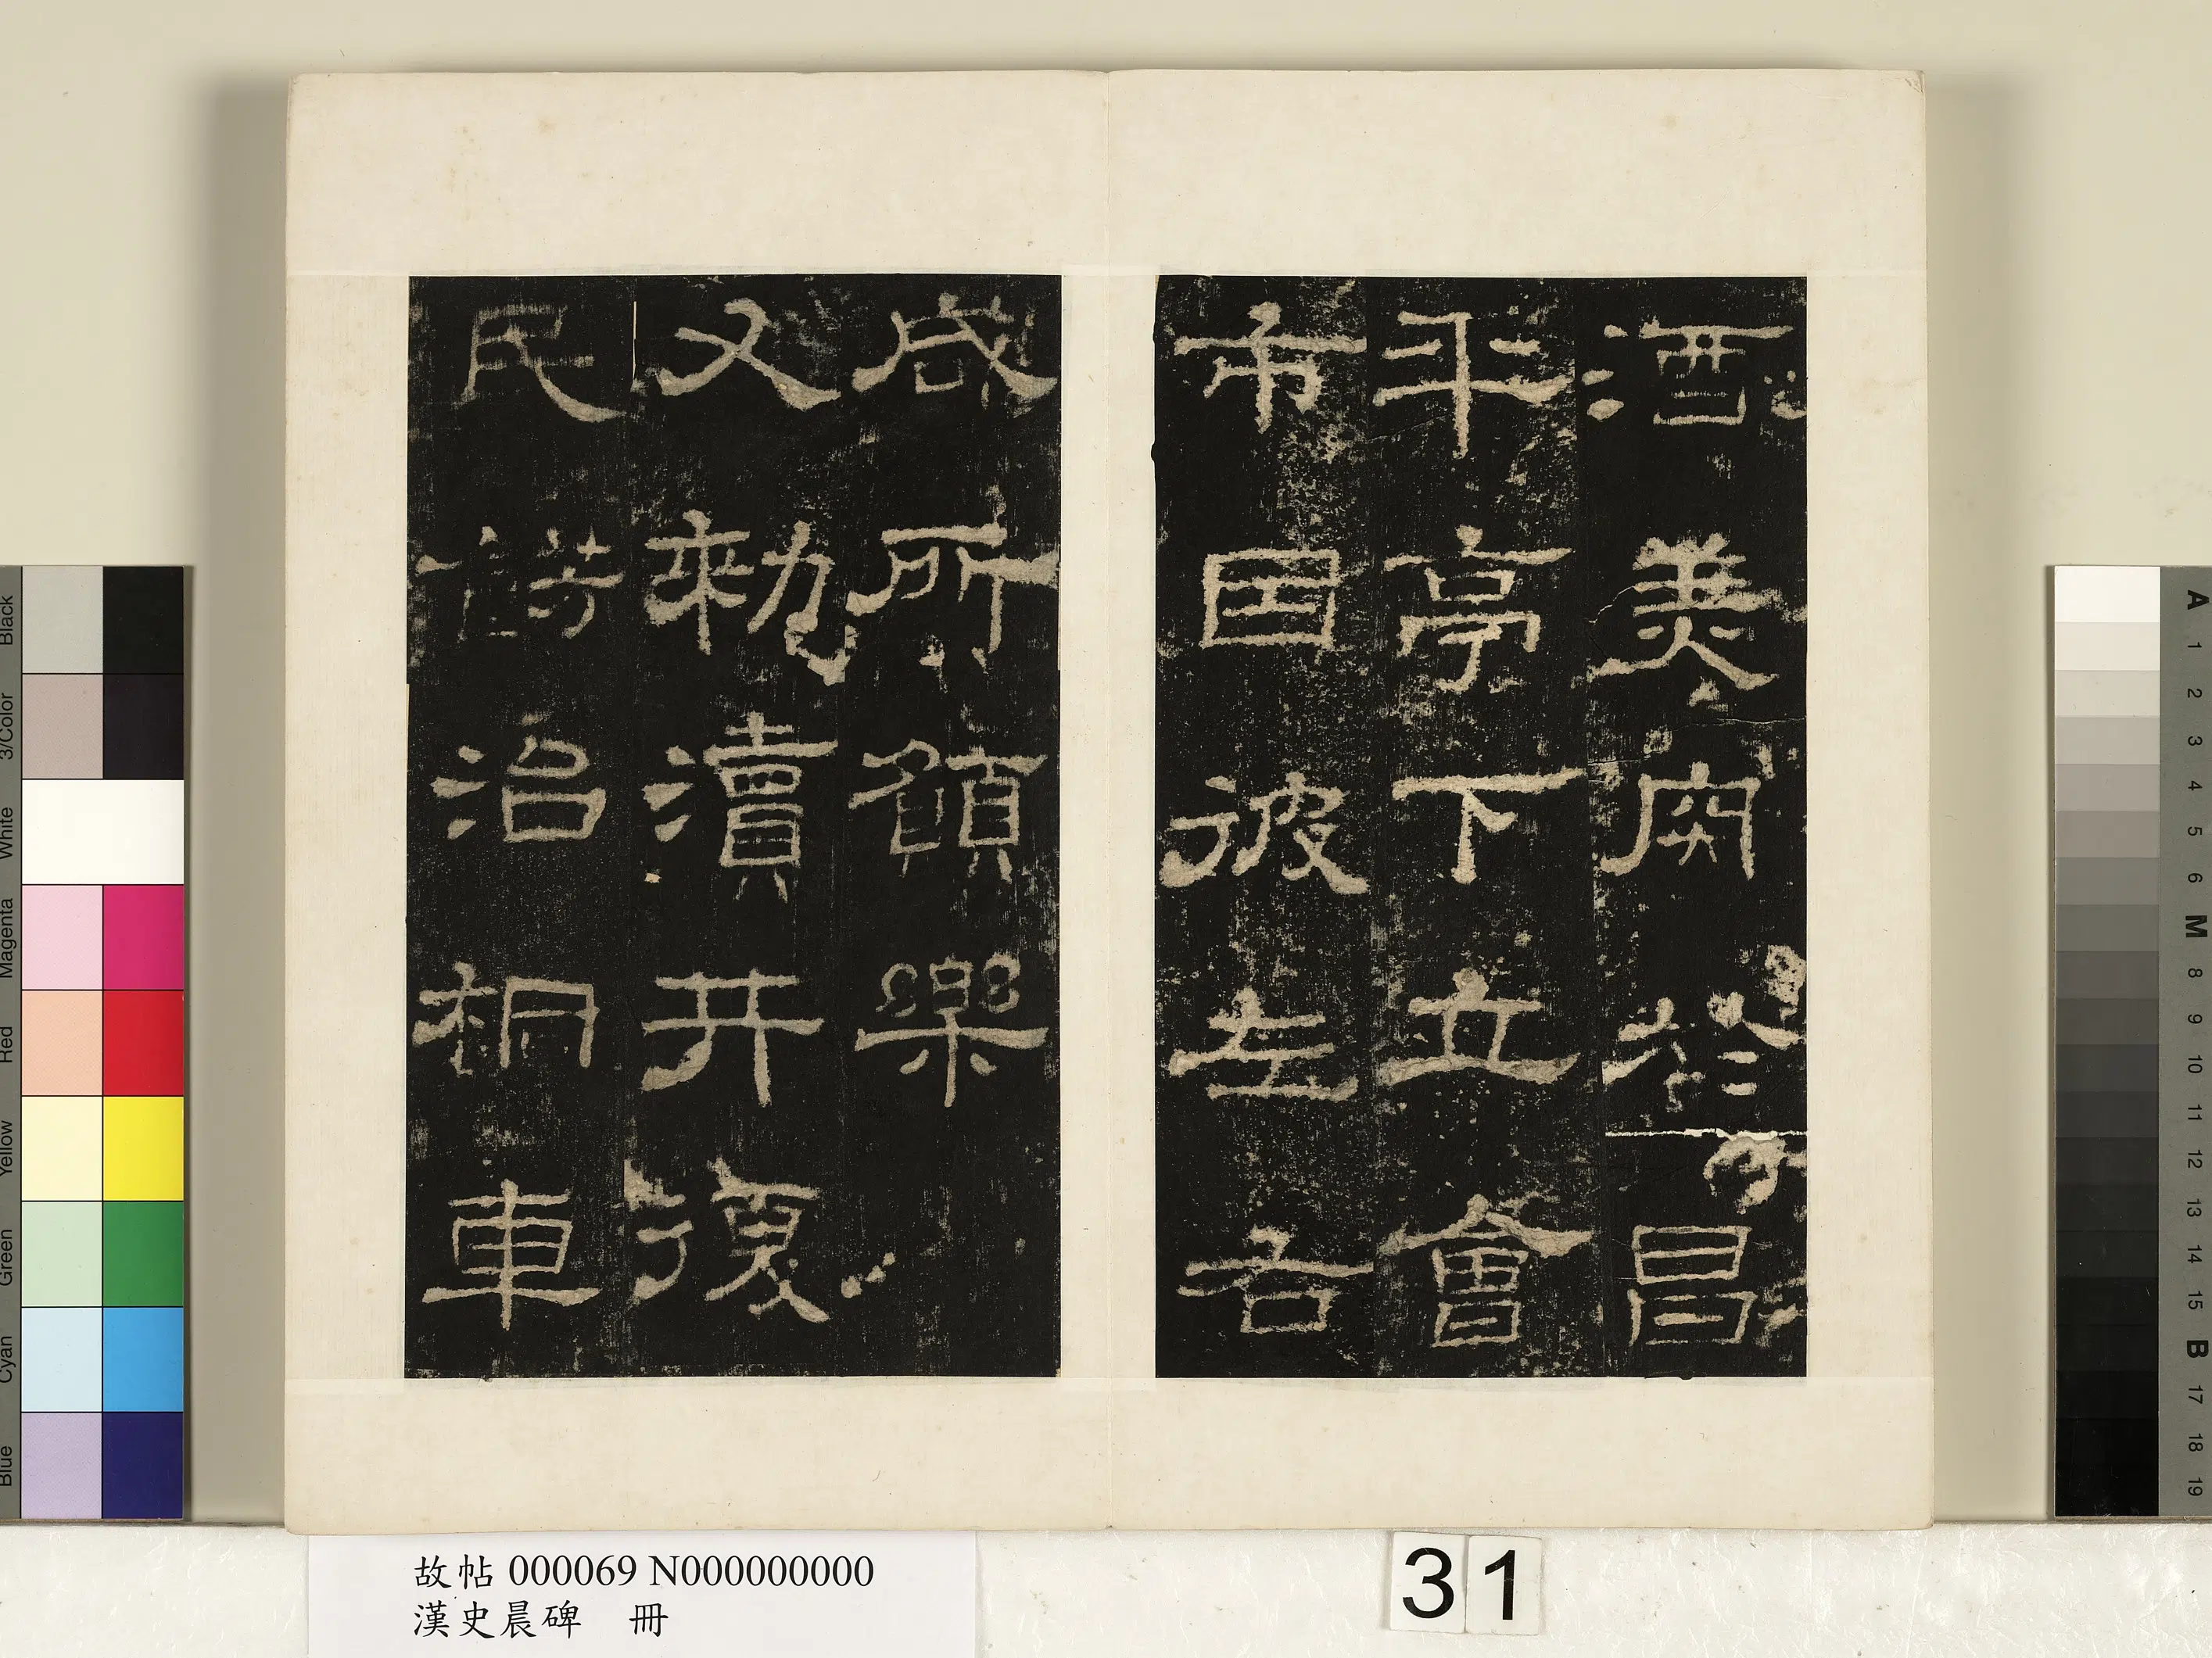 酒美肉於昌
平亭下立會
市因彼左右
咸所願樂
又勑瀆井復
民餝治桐車
故帖 000069 N000000000
漢史晨碑 冊
31
Black
3/Color
White
Magenta
Red
Yellow
Green
Cyan
Blue
A 1 2 3 4 5 6 M 8 9 10 11 12 13 14 15 B 17 18 19